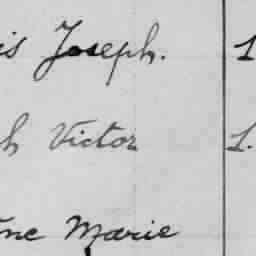 is Joseph. 1
h Victor 1.
ne Marie